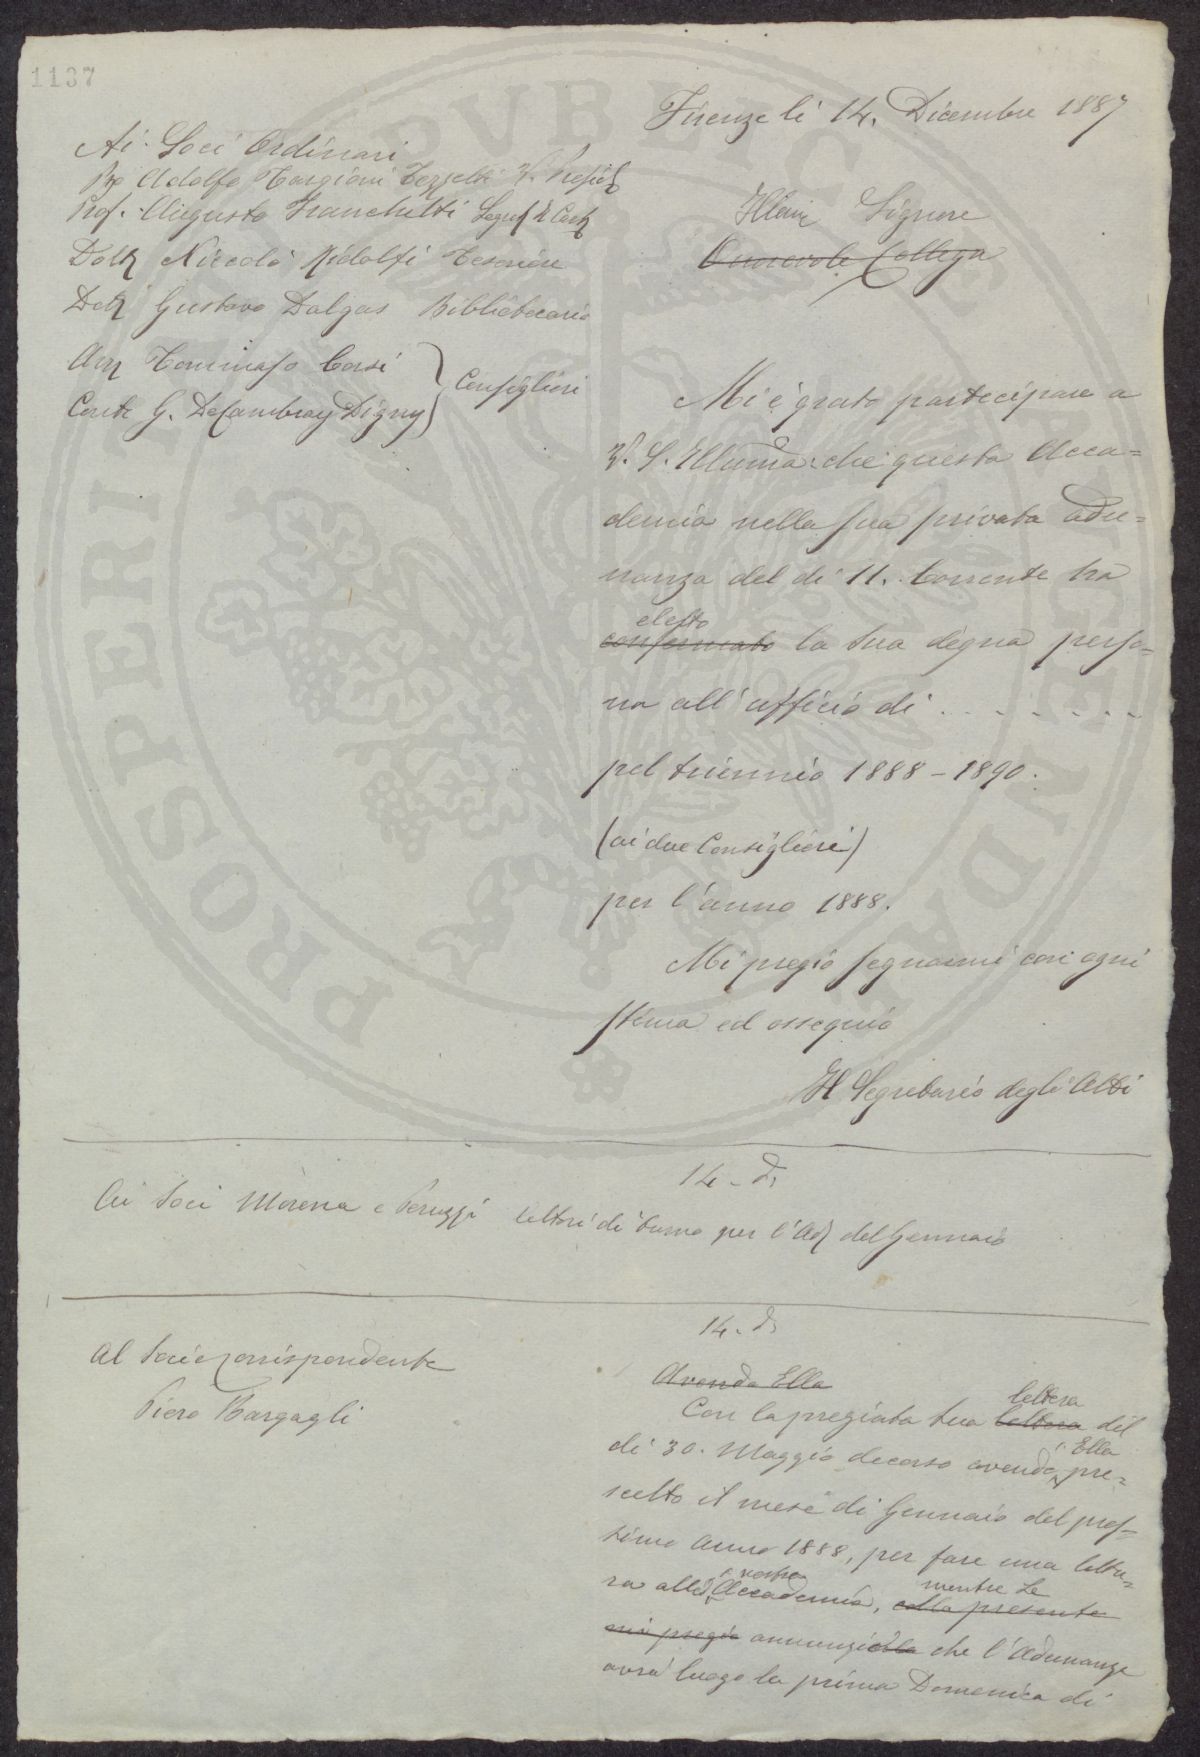 1137
Firenze li 14. Dicembre 1887
Ai Soci Ordinari
Adolfo Targioni Tozzetti V. Presid
Prof. Augusto Franchetti Segr
Dott Niccolò Ridolfi Tesoriere
Dott Gustavo Dalgas Bibliotecario
Avv Tommaso Corsi
Conte G. DeCambray Digny
Consiglieri
Illmo Signore
Onorevole Collega
Mi è grato partecipare a
V. S. Illuma: che questa Acca=
demia nella sua privata adu=
nanza del di 11. Corrente ha
eletto
confermato la Sua degna perso-
na all'ufficio di . . . . . . . .
pel triennio 1888 - 1890.
(ai due Consiglieri)
per l'anno 1888.
Mi pregio segnarmi con ogni
stima ed ossequio
Il Segretario degli Atti
14 - d
Ai Soci Morena e Peruzzi lettori di turno per l'Ad del Gennaio
14. d
Al Socio Corrispondente
Piero Bargagli
Avendo Ella
lettera
Con la pregiata Sua lettera del
Ella
di 30. Maggio decorso avendo pre-
scelto il mese di Gennaio del pros-
simo anno 1888, per fare una lettu-
nostra mentre Le
ra alla Accademia, colla presente
mi pregio annunziarle che l'Adunanza
avrà luogo la prima Domenica di
PROSPERITATI PUBLICAE AUGENDAE